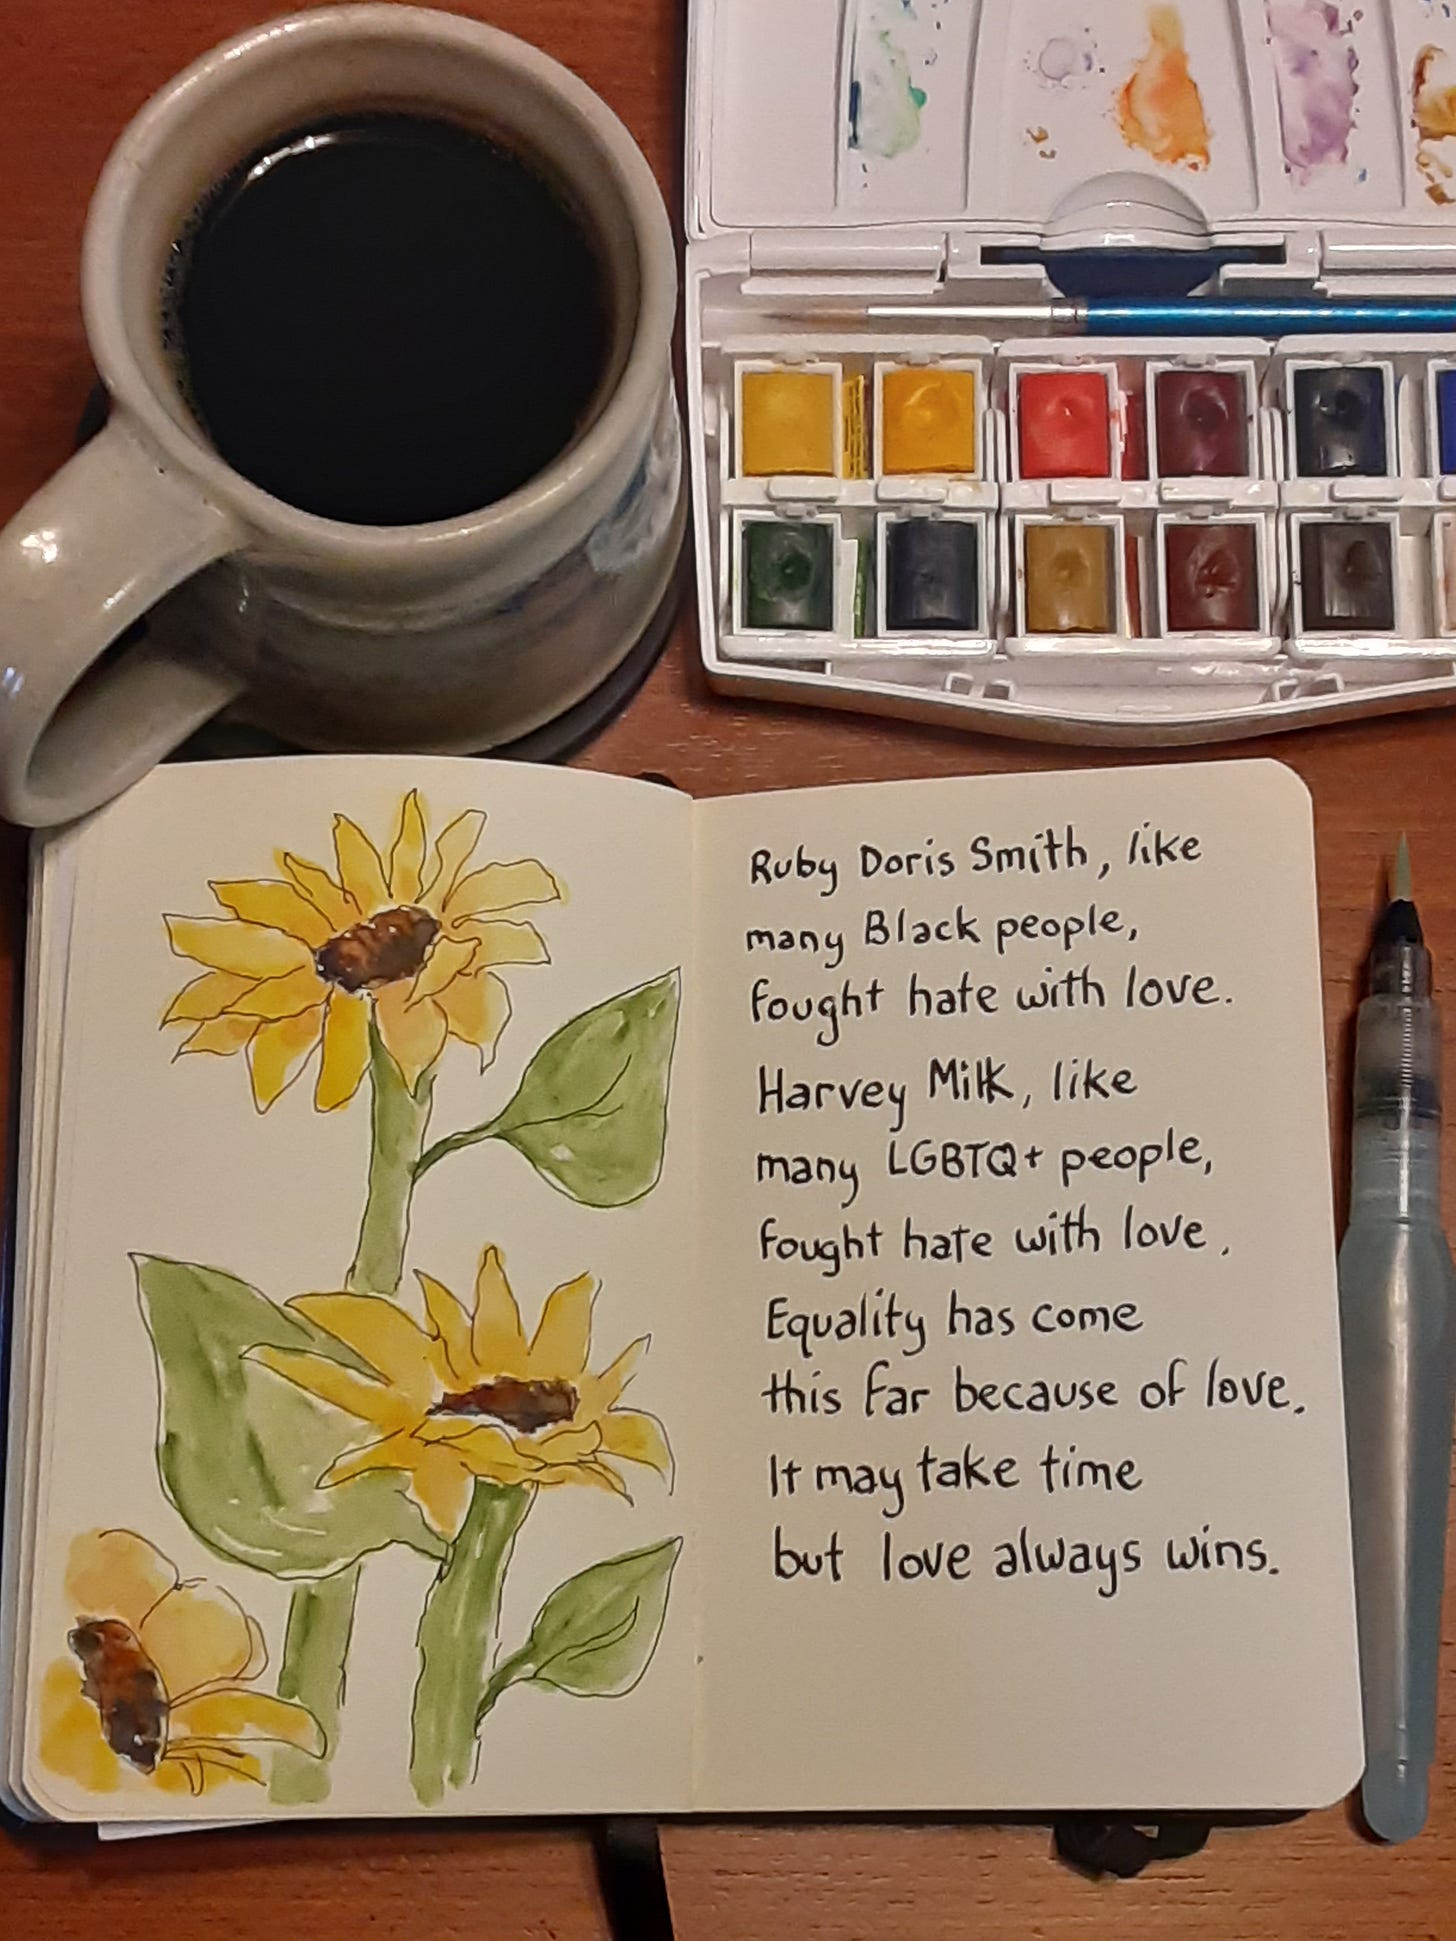 Ruby Doris Smith, like
many Black people,
fought hate with love.
Harvey Milk, like
many LGBTQ+ people,
fought hate with love.
Equality has come
this far because of love.
It may take time
but love always wins.